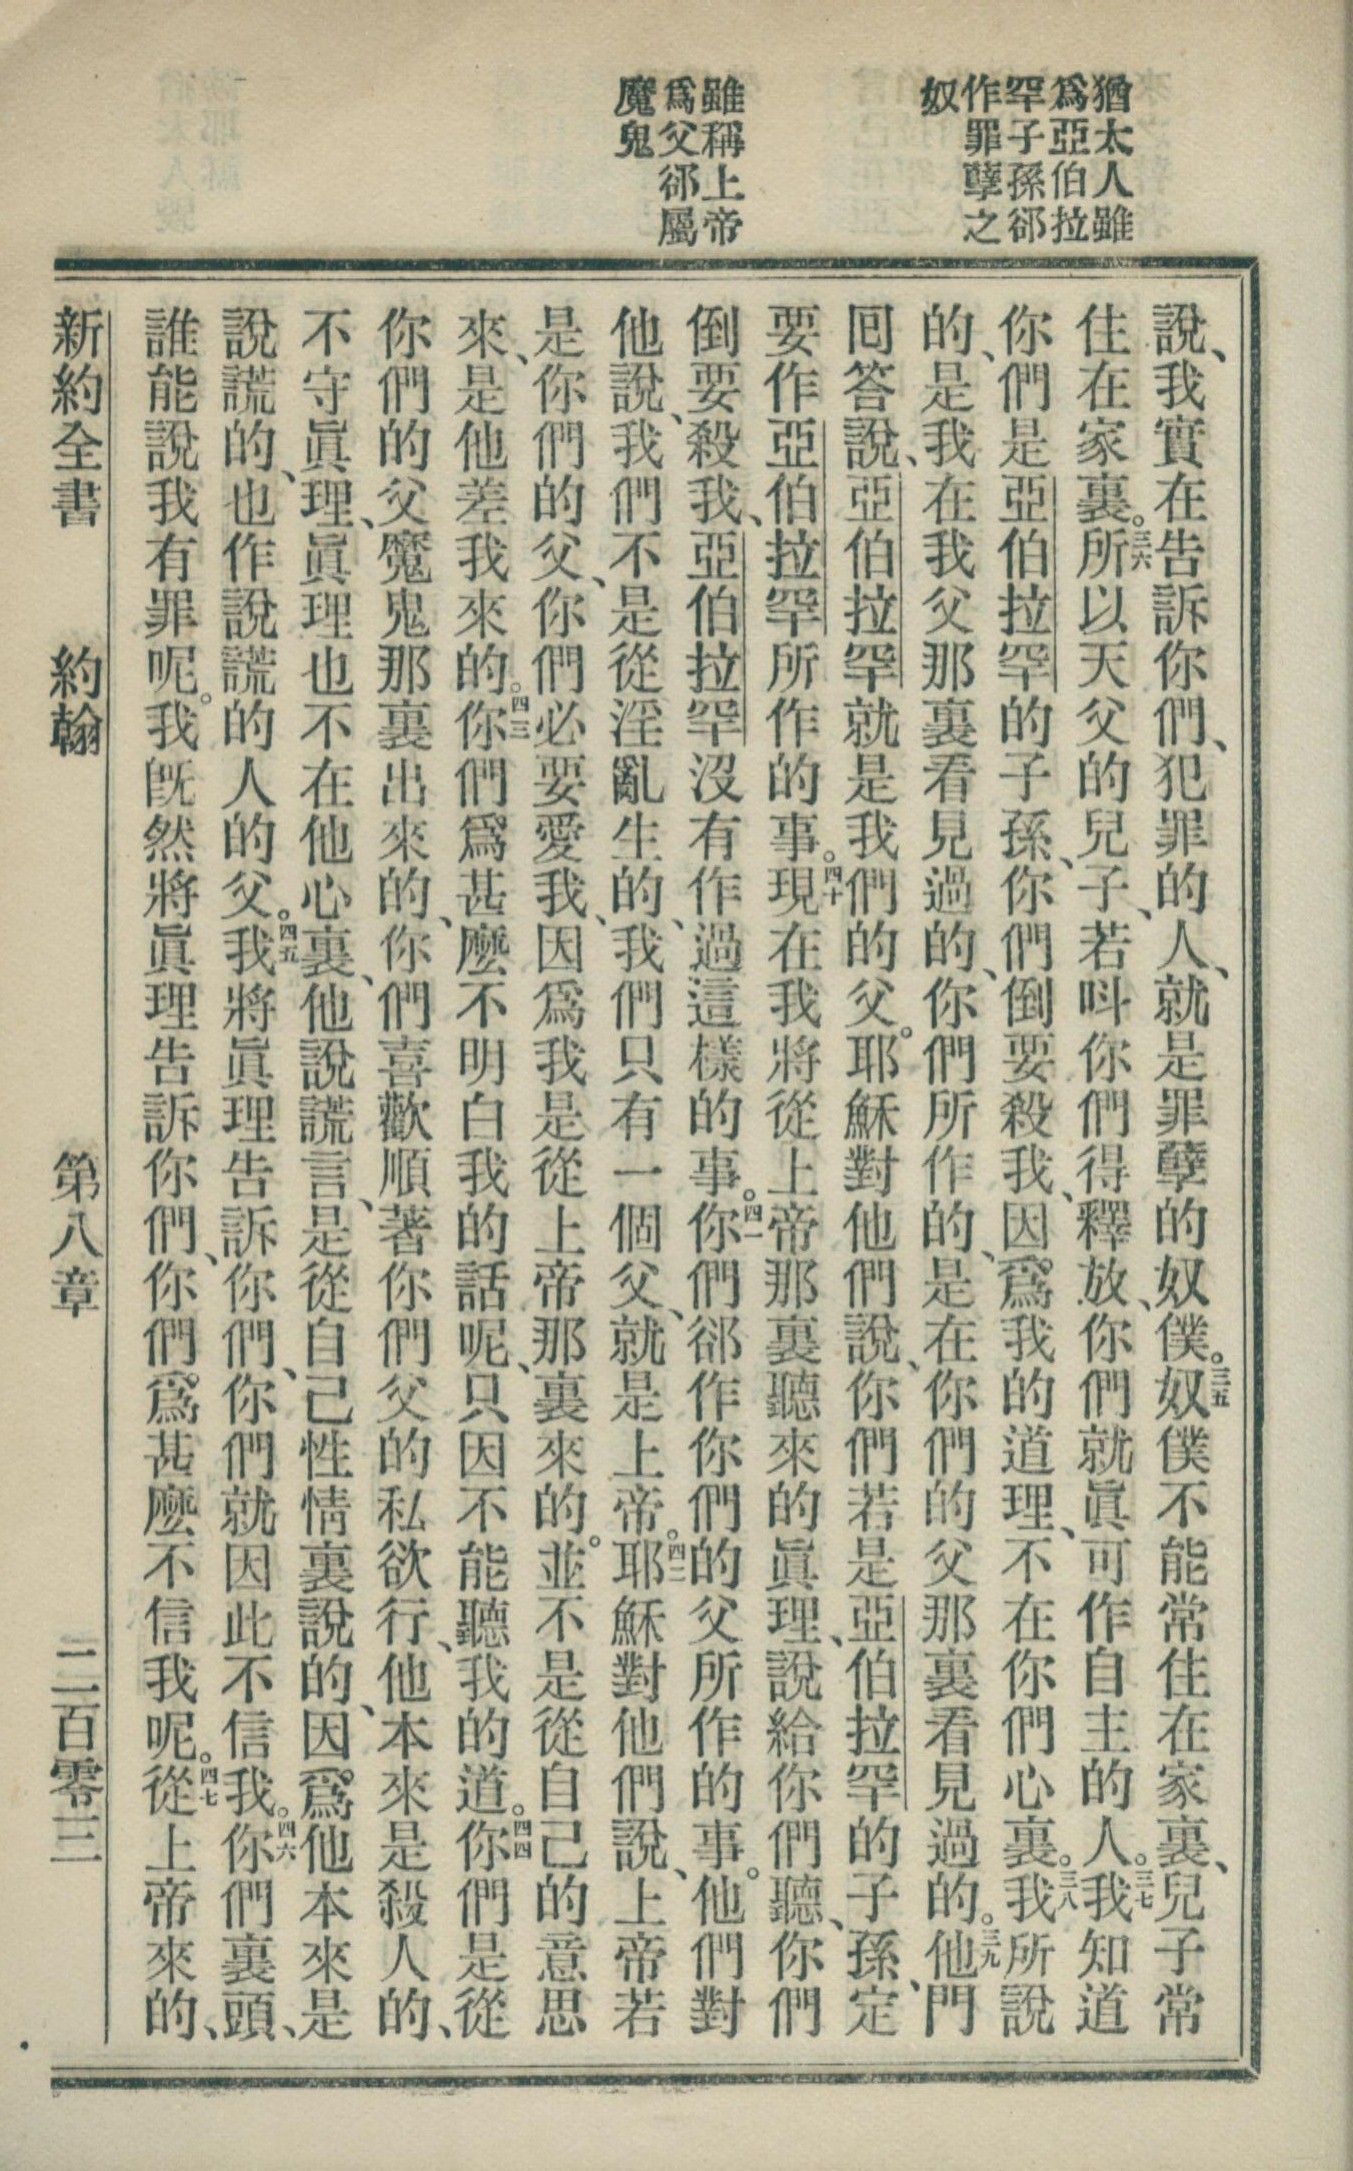 猶太人雖
爲亞伯拉
罕子孫郤
作罪孽之
奴
雖稱上帝
爲父郤屬
魔鬼
說、我實在告訴你們、犯罪的人、就是罪孽的奴僕。三五奴僕不能常住在家裏、兒子常
住在家裏。三六所以天父的兒子、若呌你們得釋放、你們就眞可作自主的人。三七我知道
你們是亞伯拉罕的子孫、你們倒要殺我、因爲我的道理、不在你們心裏。三八我所說
的、是我在我父那裏看見過的、你們所作的、是在你們的父那裏看見過的。三九他門
囘答說、亞伯拉罕就是我們的父。耶穌對他們說、你們若是亞伯拉罕的子孫、定
要作亞伯拉罕所作的事。四十現在我將從上帝那裏聽來的眞理、說給你們聽、你們
倒要殺我、亞伯拉罕沒有作過這樣的事。四一你們郤作你們的父所作的事。他們對
他說、我們不是從淫亂生的、我們只有一個父、就是上帝。四二耶穌對他們說、上帝若
是你們的父、你們必要愛我、因爲我是從上帝那裏來的。並不是從自己的意思
來、是他差我來的。四三你們爲甚麼不明白我的話呢、只因不能聽我的道。四四你們是從
你們的父魔鬼那裏出來的、你們喜歡順著你們父的私欲行、他本來是殺人的、
不守眞理、眞理也不在他心裏、他說謊言、是從自己性情裏說的、因爲他本來是
說謊的、也作說謊的人的父。四五我將眞理告訴你們、你們就因此不信我。四六你們裏頭、
誰能說我有罪呢。我旣然將眞理告訴你們、你們爲甚麼不信我呢。四七從上帝來的、
新約全書 約翰 第八章 二百零三